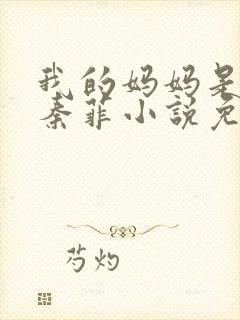 我的妈妈是
秦菲小说免
芍灼